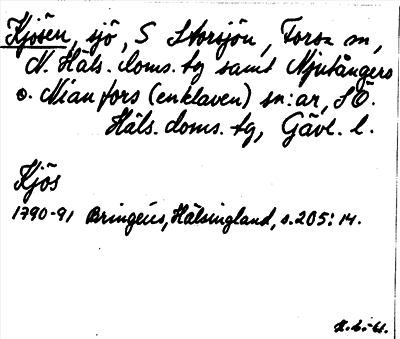 Kjösen, sjö, S Storsjön, Forsa sn,
N. Häls. doms. tg samt Njutångers
o. Nianfors (enklaven) sn:ar, S Ö.
Häls. doms. tg, Gävl. l.
Kjös
1790-91 Bringéus, Hälsingland, s. 205: 14.